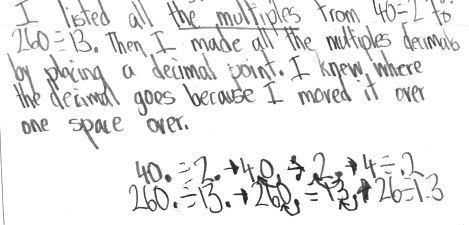 I listed all the multiples from 40÷2 to
260÷13. Then I made all the multiples decimals
by placing a decimal point. I knew where
the decimal goes because I moved it over
one space over.
40.÷2.→4.0.÷.2.→4÷.2
260.÷13.→26.0.÷1.3.→26÷1.3